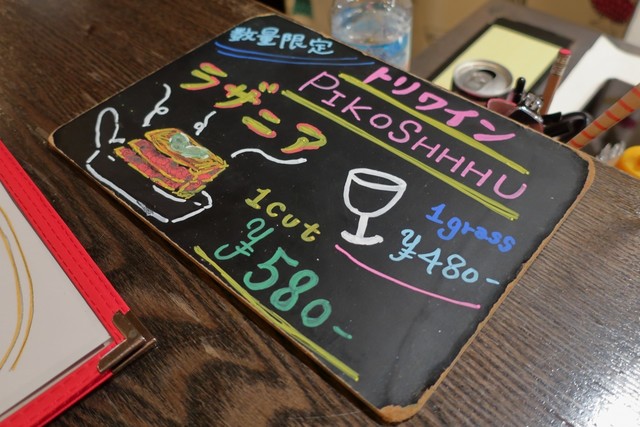 数量限定
ラザニア
1cut
¥580-
トリワイン
PIKOSHHHU
1grass
¥480-